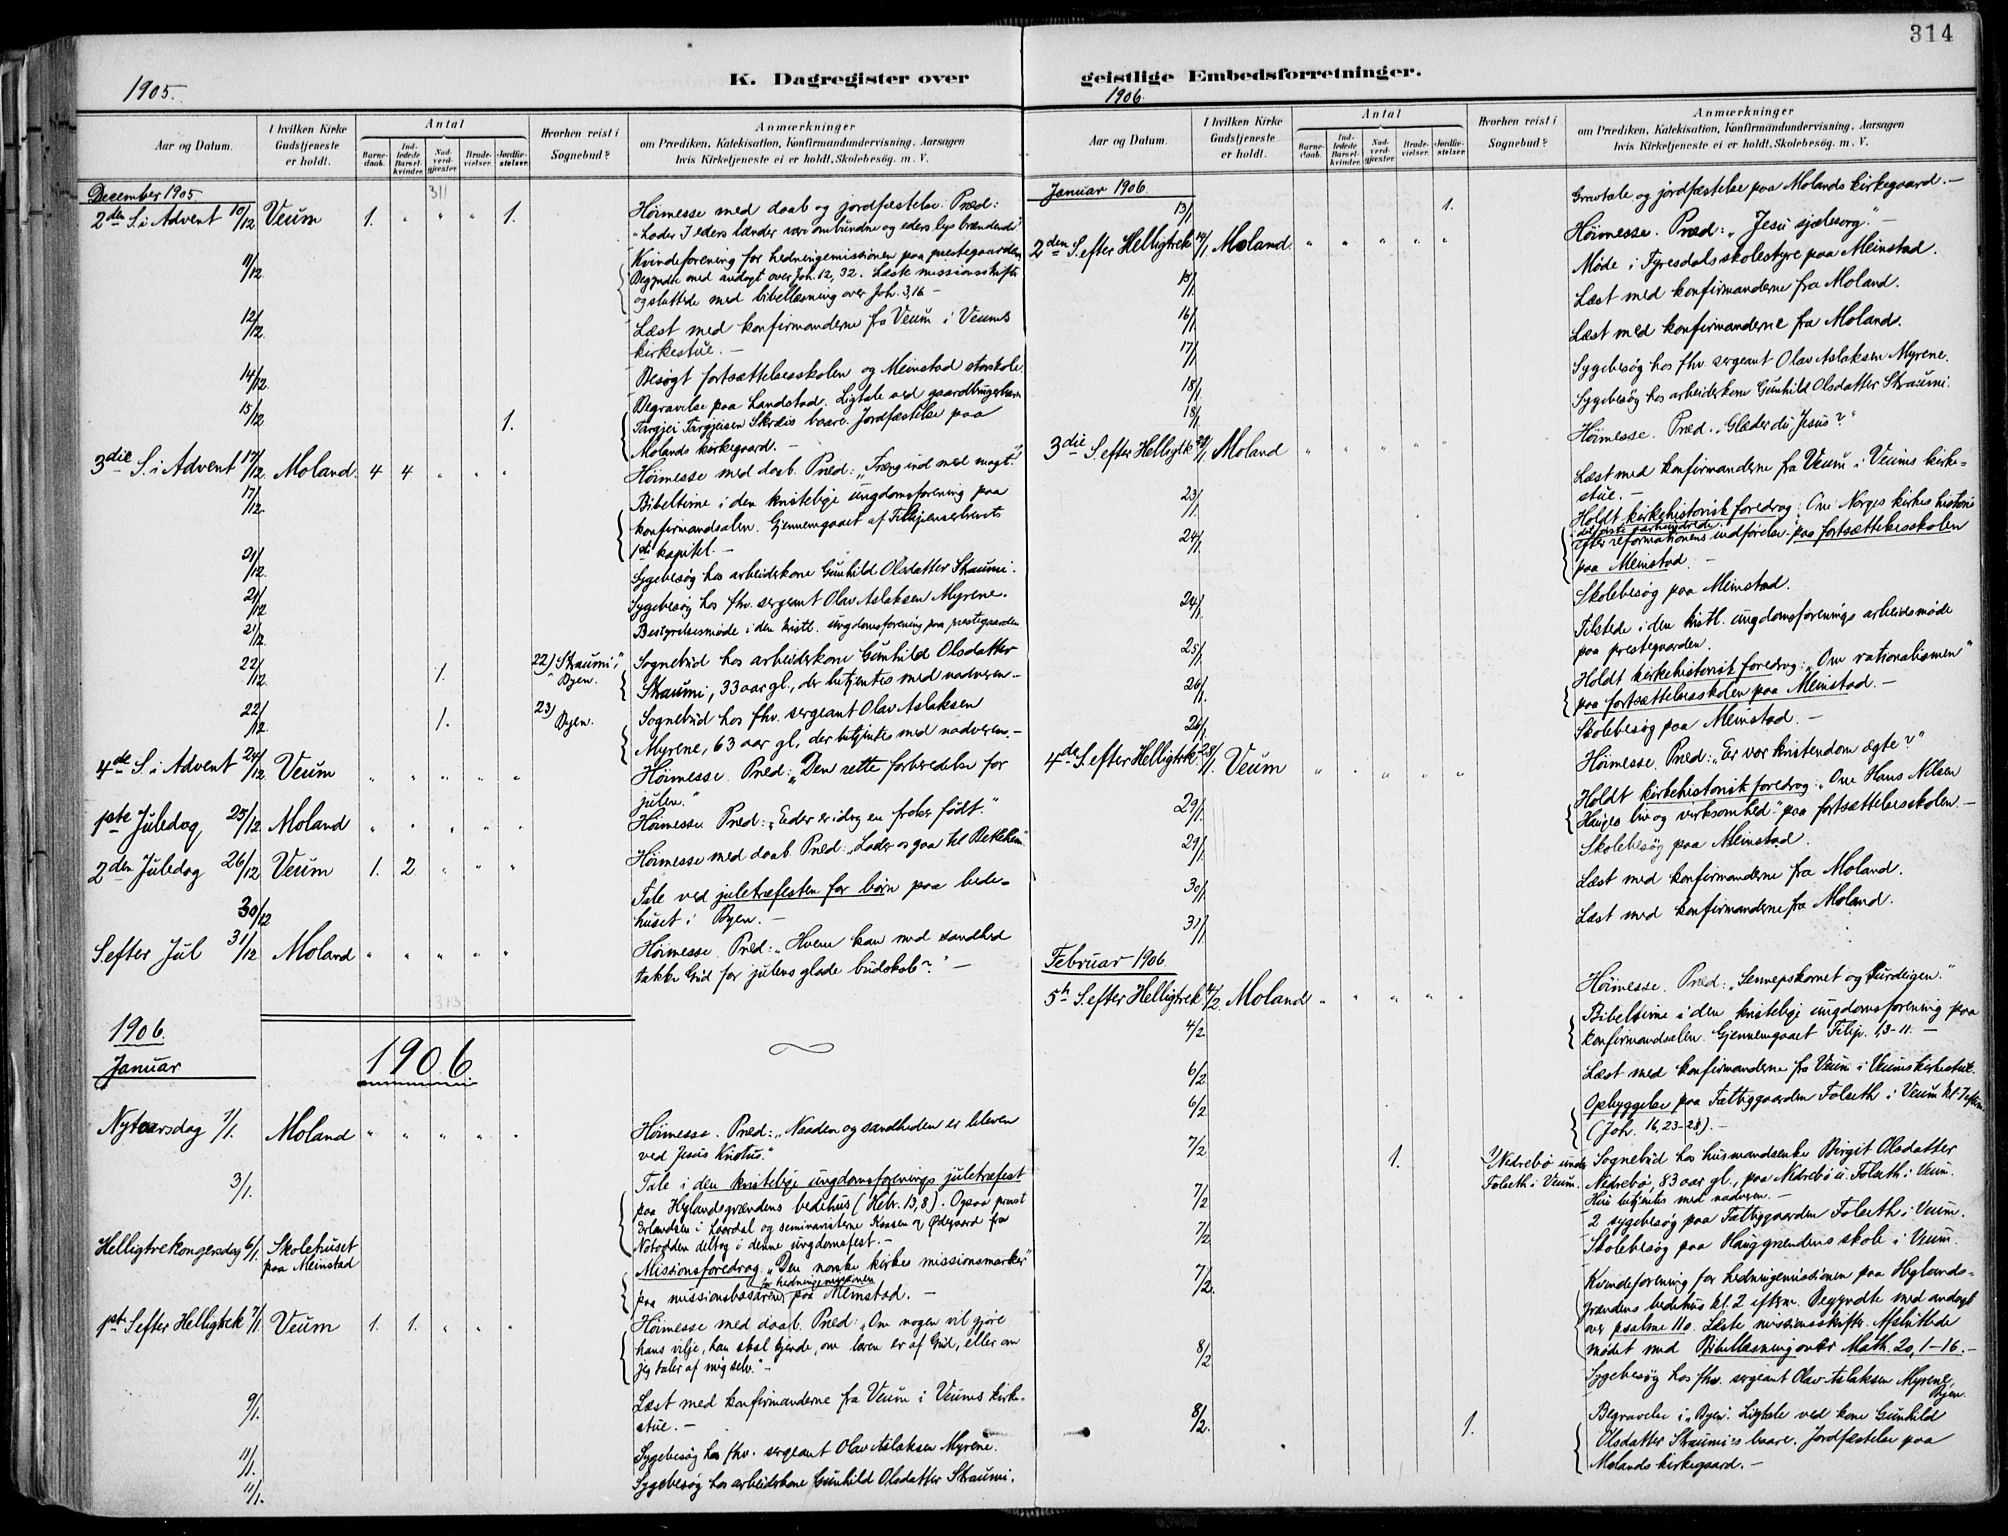 314
K. Dagregister over geistlige Embedsforretninger.
1905.
Aar og Datum.
I hvilken Kirke Gudstjeneste er holdt.
Antal
Barnedaab.
Indledede Barselkvinder.
Nadverdgjæster
Brudevielser.
Jordfæstelser.
Hvorhen reist i Sognebud?
Anmærkninger
om Prædiken, Katekisation, Konfirmandundervisning, Aarsagen
hvis Kirketjeneste ei er holdt, Skolebesøg. m. V.
311
December 1905
2den S. i Advent 10/12 Veum 1. " " " 1. Høimesse med daab og jordfæstelse. Præd:
"Lader I eders lænder være ombundne og eders lys brændende"
11/12 Kvindeforening for hedningemissionen paa prestegaarden
Begyndte med andagt over Joh. 12, 32. Læste missionsskrifter
og sluttede med bibellæsning over Joh. 3,16 –
12/12 Læst med konfirmanderne fra Veum i Veums
kirkestue. –
14/12 Besøgt fortsættelsesskolen og Meinstad storskole
15/12 1. Begravelse paa Landstad. Ligtale ved gaardbruger
Targjei Targjeisen Skræis baare. Jordfæstelse paa
Molands kirkegaard. –
3die S. i Advent 17/12 Moland. 4 4 " " " Høimesse med daab. Præd: "Træng ind med magt."
17/12 Bibeltime i den kristelige ungdomsforening paa
konfirmandsalen. Gjennemgaaet af Filipenserbrevets
1ste kapitel. –
21/12 Sygebesøg hos arbeiderkone Gunhild Olsdatter Straumi.
21/12 Sygebesøg hos fhv. sergeant Olav Aslaksen Myrene.
21/12 Bestyrelsesmøde i den kristl. ungdomsforening paa prestegaarden
22/12 1. 22) Straumi i "Byen. Sognebud hos arbeiderkone Gunhild Olsdatter
Straumi, 33 aar gl., der betjentes med nadveren –
22/12 1. 23) Byen. Sognebud hos fhv. sergeant Olav Aslaksen
Myrene, 63 aar gl., der betjentes med nadveren. –
4de S. i Advent 24/12 Veum " " " " " Høimesse. Præd: "Den rette forberedelse for
julen."
1ste Juledag 25/12 Moland " " " " " Høimesse Præd: "Eder er idag en frelser født."
2den Juledag 26/12 Veum 1. 2 " " " Høimesse med daab. Præd: "Lader os gaa til Betlehem"
30/12 Tale ved juletræfesten for børn paa bede-
huset i Byen. –
S. efter Jul 31/12 Moland " " " " " Høimesse. Præd: "Hvem kan med sandhed
takke Gud for julens glade budskab?" –
313
1906.
Januar
1906
Nytaarsdag 1/1. Moland " " " " " Høimesse. Præd: "Naaden og sandheden er bleven
ved Jesus Kristus."
3/1. Tale i den kristelige ungdomsforenings juletræfest
paa Hylandsgrændens bedehus (Hebr. 13,8). Ogsaa provst
Erlandsen i Laardal og seminaristerne Kaasen og Ødegaard fra
Notodden deltog i denne ungdomsfest. –
Helligtrekongersdag 6/1. Skolehuset paa Meinstad Missionsforedrag: "Den norske kirkes missionsmarker"
for hedningemissionen
paa missionsbasaren paa Meinstad. –
1ste S. efter Helligtrek 7/1. Veum 1. 1. " " " Høimesse med daab. Præd: "Om nogen vil gjøre
hans vilje, han skal kjende, om læren er af Gud, eller om
jeg taler af mig selv." –
9/1. Læst med konfirmanderne fra Veum i Veums kirke-
stue. –
11/1. Sygebesøg hos fhv. sergeant Olav Aslaksen Myrene.
11/1. Sygebesøg hos arbeiderkone Gunhild Olsdatter Straumi.
1906.
Aar og Datum.
I hvilken Kirke Gudstjeneste er holdt.
Antal
Barnedaab.
Indledede Barselkvinder.
Nadverdgjæster.
Brudevielser.
Jordfæstelser.
Hvorhen reist i Sognebud?
Anmærkninger
om Prædiken, Katekisation, Konfirmandundervisning, Aarsagen
hvis Kirketjeneste ei er holdt, Skolebesøg. m. V.
Januar 1906.
13/1 1. Gravtale og jordfæstelse paa Molands kirkegaard. –
2den S. efter Helligtrek 14/1 Moland. " " " " " Høimesse. Præd: "Jesu sjælesorg." –
15/1 Møde i Tyresdals skolestyre paa Meinstad.
16/1. Læst med konfirmanderne fra Moland.
17/1 Læst med konfirmanderne fra Moland.
18/1. Sygebesøg hos fhv. sergeant Olav Aslaksen Myrene.
18/1. Sygebesøg hos arbeiderkone Gunhild Olsdatter Straumi.
3die S. efter Helligtrk 21/1 Moland " " " " " Høimesse. Præd. "Glæder du Jesus?"
23/1. Læst med konfirmanderne fra Veum i Veums kirke-
stue. –
24/1. Holdt kirkehistorisk foredrag: Om Norges kirkes historie
i det første aarhundrede
efter reformationens indførelse paa fortsættelsesskolen
paa Meinstad. –
24/1. Skolebesøg paa Meinstad.
25/1. Tilstede i den kristl. ungdomsforenings arbeidsmøde
paa prestegaarden.
26/1. Holdt kirkehistorisk foredrag: "Om rationalismen"
paa fortsættelsesskolen paa Meinstad. –
26/1. Skolebesøg paa Meinstad. –
4de S. efter Helligtrek. 28/1. Veum " " " " " Høimesse. Præd: "Er vor kristendom ægte?"
29/1. Holdt kirkehistorisk foredrag: "Om Hans Nilsen
Hauges liv og virksomhed." paa fortsættelsesskolen –
29/1. Skolebesøg paa Meinstad.
30/1. Læst med konfirmanderne fra Moland.
31/1. Læst med konfirmanderne fra Moland.
Februar 1906
5te S. efter Helligtrek 4/2. Moland " " " " " Høimesse. Præd: "Sennepskornet og surdeigen."
4/2 Bibeltime i den kristelige ungdomsforening paa
konfirmandsalen. Gjennemgaaet Filip. 1,3–11. –
6/2 Læst med konfirmanderne fra Veum i Veums kirkestue.
6/2 Opbyggelse paa Fattiggaarden Folseth i Veum kl. 7 efterm.
(Joh. 16,23–28). –
7/2 1. 1) Nedrebø under Folseth i Veum. Sognebud hos husmandsenke Birgit Olsdatter
Nedrebø, 83 aar gl., paa Nedrebø u. Folseth i Veum.
Hun betjentes med nadveren. –
7/2 2 sygebesøg paa Fattiggaarden Folseth i Veum.
7/2 Skolebesøg paa Hauggrændens skole i Veum.
7/2. Kvindeforening for hedningemissionen paa Hylands-
grændens bedehus kl. 2 efterm. Begyndte med andagt
over psalme 110. Læste missionsskrifter. Afsluttede
mødet med Bibellæsning over Math. 20, 1–16. –
8/2 Sygebesøg hos fhv. sergeant Olav Aslaksen Myrene,
Byen.
8/2. 1. Begravelse i "Byen." Ligtale ved kone Gunhild
Olsdatter Straumi's baare. Jordfæstelse paa
Molands kirkegaard. –